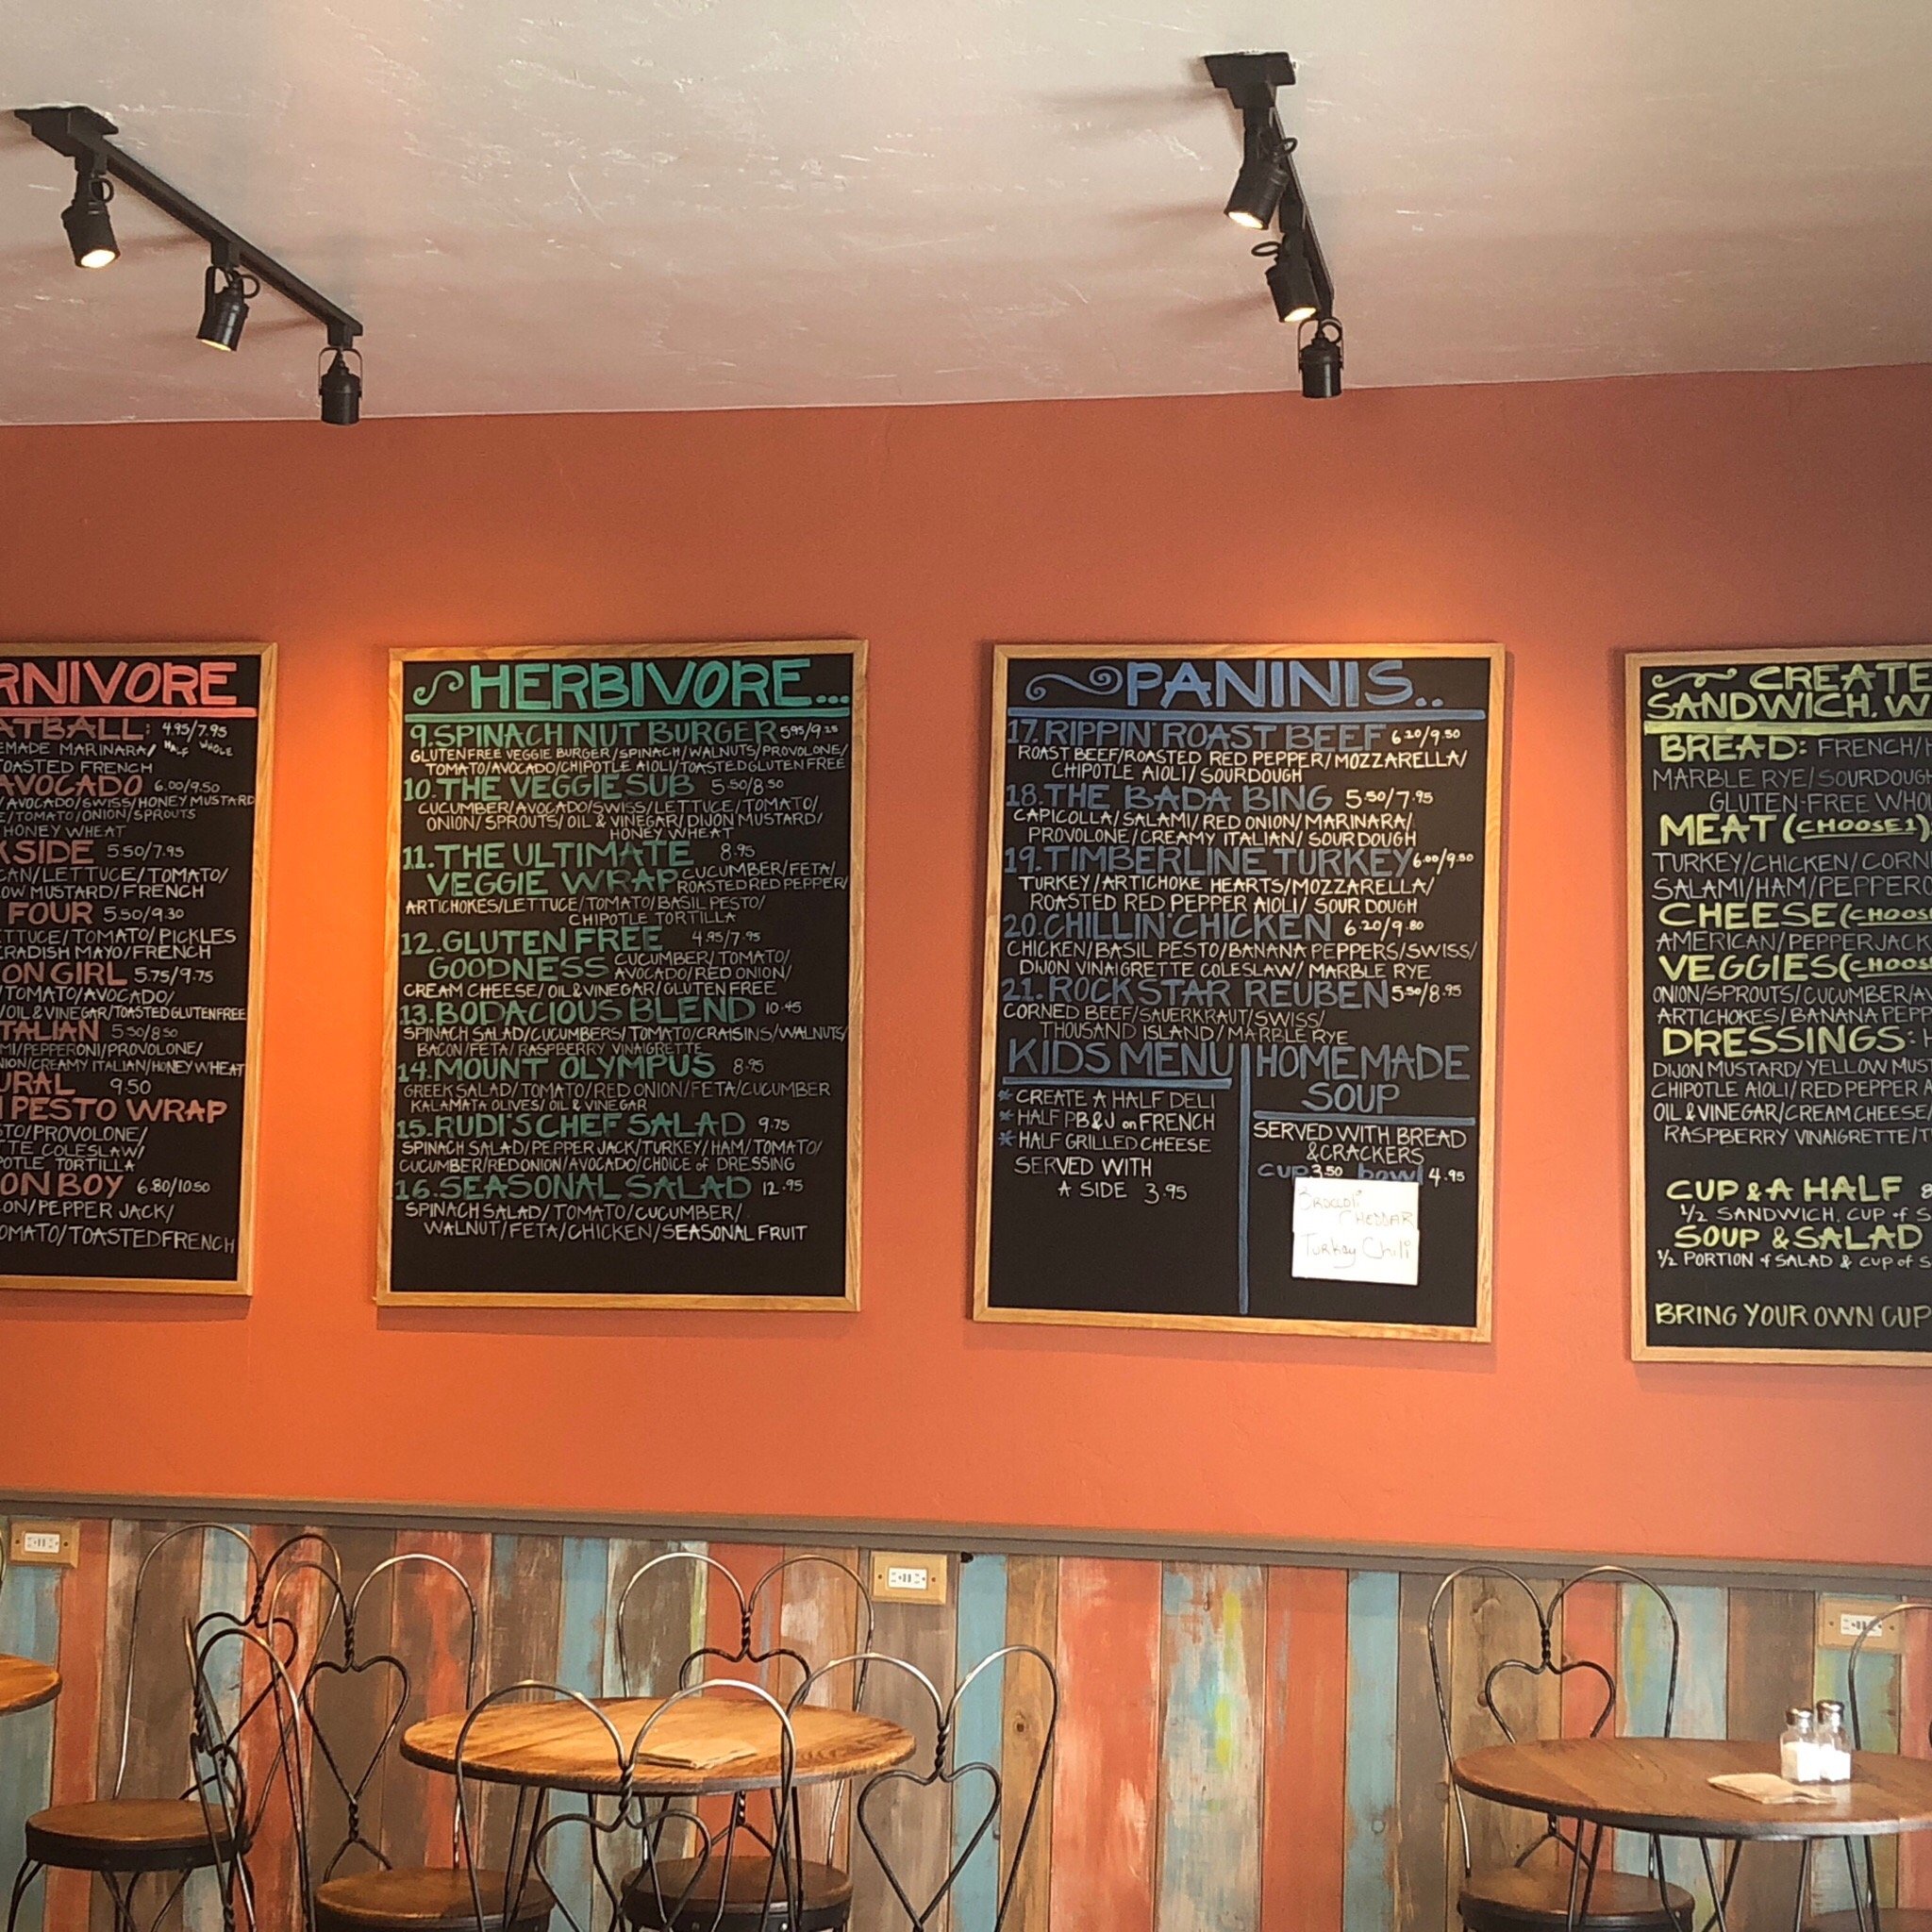 RNIVORE
ATBALL: 4.95/7.95
EMADE MARINARA/ HALF WHOLE
TOASTED FRENCH
AVOCADO 6.00/9.50
/AVOCADO/SWISS/HONEY MUSTARD
E/TOMATO/ONION/SPROUTS
HONEY WHEAT
KSIDE 5.50/7.95
CAN/LETTUCE/TOMATO/
OW MUSTARD/FRENCH
FOUR 5.50/9.30
ETTUCE/TOMATO/PICKLES
ERADISH MAYO/FRENCH
ON GIRL 5.75/9.75
/TOMATO/AVOCADO/
/OIL & VINEGAR/TOASTED GLUTENFREE
TALIAN 5.50/8.50
MI/PEPPERONI/PROVOLONE/
NION/CREAMY ITALIAN/HONEY WHEAT
URAL 9.50
PESTO WRAP
STO/PROVOLONE/
TTE COLESLAW/
POTLE TORTILLA
ON BOY 6.80/10.50
CON/PEPPER JACK/
OMATO/TOASTED FRENCH
HERBIVORE...
9. SPINACH NUT BURGER 5.95/9.25
GLUTEN FREE VEGGIE BURGER/SPINACH/WALNUTS/PROVOLONE/
TOMATO/AVOCADO/CHIPOTLE AIOLI/TOASTED GLUTEN FREE
10. THE VEGGIE SUB 5.50/8.50
CUCUMBER/AVOCADO/SWISS/LETTUCE/TOMATO/
ONION/SPROUTS/OIL & VINEGAR/DIJON MUSTARD/
HONEY WHEAT
11. THE ULTIMATE 8.95
VEGGIE WRAP CUCUMBER/FETA/
ROASTED RED PEPPER/
ARTICHOKES/LETTUCE/TOMATO/BASIL PESTO/
CHIPOTLE TORTILLA
12. GLUTEN FREE 4.95/7.95
GOODNESS CUCUMBER/TOMATO/
AVOCADO/RED ONION/
CREAM CHEESE/OIL & VINEGAR/GLUTEN FREE
13. BODACIOUS BLEND 10.45
SPINACH SALAD/CUCUMBERS/TOMATO/CRAISINS/WALNUTS/
BACON/FETA/RASPBERRY VINAIGRETTE
14. MOUNT OLYMPUS 8.95
GREEK SALAD/TOMATO/RED ONION/FETA/CUCUMBER
KALAMATA OLIVES/OIL & VINEGAR
15. RUDI'S CHEF SALAD 9.75
SPINACH SALAD/PEPPER JACK/TURKEY/HAM/TOMATO/
CUCUMBER/RED ONION/AVOCADO/CHOICE of DRESSING
16. SEASONAL SALAD 12.95
SPINACH SALAD/TOMATO/CUCUMBER/
WALNUT/FETA/CHICKEN/SEASONAL FRUIT
PANINIS..
17. RIPPIN ROAST BEEF 6.20/9.50
ROAST BEEF/ROASTED RED PEPPER/MOZZARELLA/
CHIPOTLE AIOLI/SOURDOUGH
18. THE BADA BING 5.50/7.95
CAPICOLLA/SALAMI/RED ONION/MARINARA/
PROVOLONE/CREAMY ITALIAN/SOURDOUGH
19. TIMBERLINE TURKEY 6.00/9.50
TURKEY/ARTICHOKE HEARTS/MOZZARELLA/
ROASTED RED PEPPER AIOLI/SOUR DOUGH
20. CHILLIN' CHICKEN 6.20/9.80
CHICKEN/BASIL PESTO/BANANA PEPPERS/SWISS/
DIJON VINAIGRETTE COLESLAW/MARBLE RYE
21. ROCK STAR REUBEN 5.50/8.95
CORNED BEEF/SAUERKRAUT/SWISS/
THOUSAND ISLAND/MARBLE RYE
KIDS MENU
* CREATE A HALF DELI
* HALF PB&J on FRENCH
* HALF GRILLED CHEESE
SERVED WITH
A SIDE 3.95
HOMEMADE
SOUP
SERVED WITH BREAD
& CRACKERS
CUP 3.50 bowl 4.95
BROCCOLI
CHEDDAR
Turkey Chili
CREATE
SANDWICH, W
BREAD: FRENCH/
MARBLE RYE/SOURDOUG
GLUTEN-FREE WHO
MEAT (CHOOSE 1)
TURKEY/CHICKEN/CORN
SALAMI/HAM/PEPPERO
CHEESE (CHOOS
AMERICAN/PEPPERJACK
VEGGIES (CHOOS
ONION/SPROUTS/CUCUMBER/AV
ARTICHOKES/BANANA PEPP
DRESSINGS: H
DIJON MUSTARD/YELLOW MUS
CHIPOTLE AIOLI/RED PEPPER A
OIL & VINEGAR/CREAM CHEESE
RASPBERRY VINAIGRETTE/T
CUP & A HALF 8
1/2 SANDWICH, CUP of S
SOUP & SALAD
1/2 PORTION of SALAD & CUP of S
BRING YOUR OWN CUP